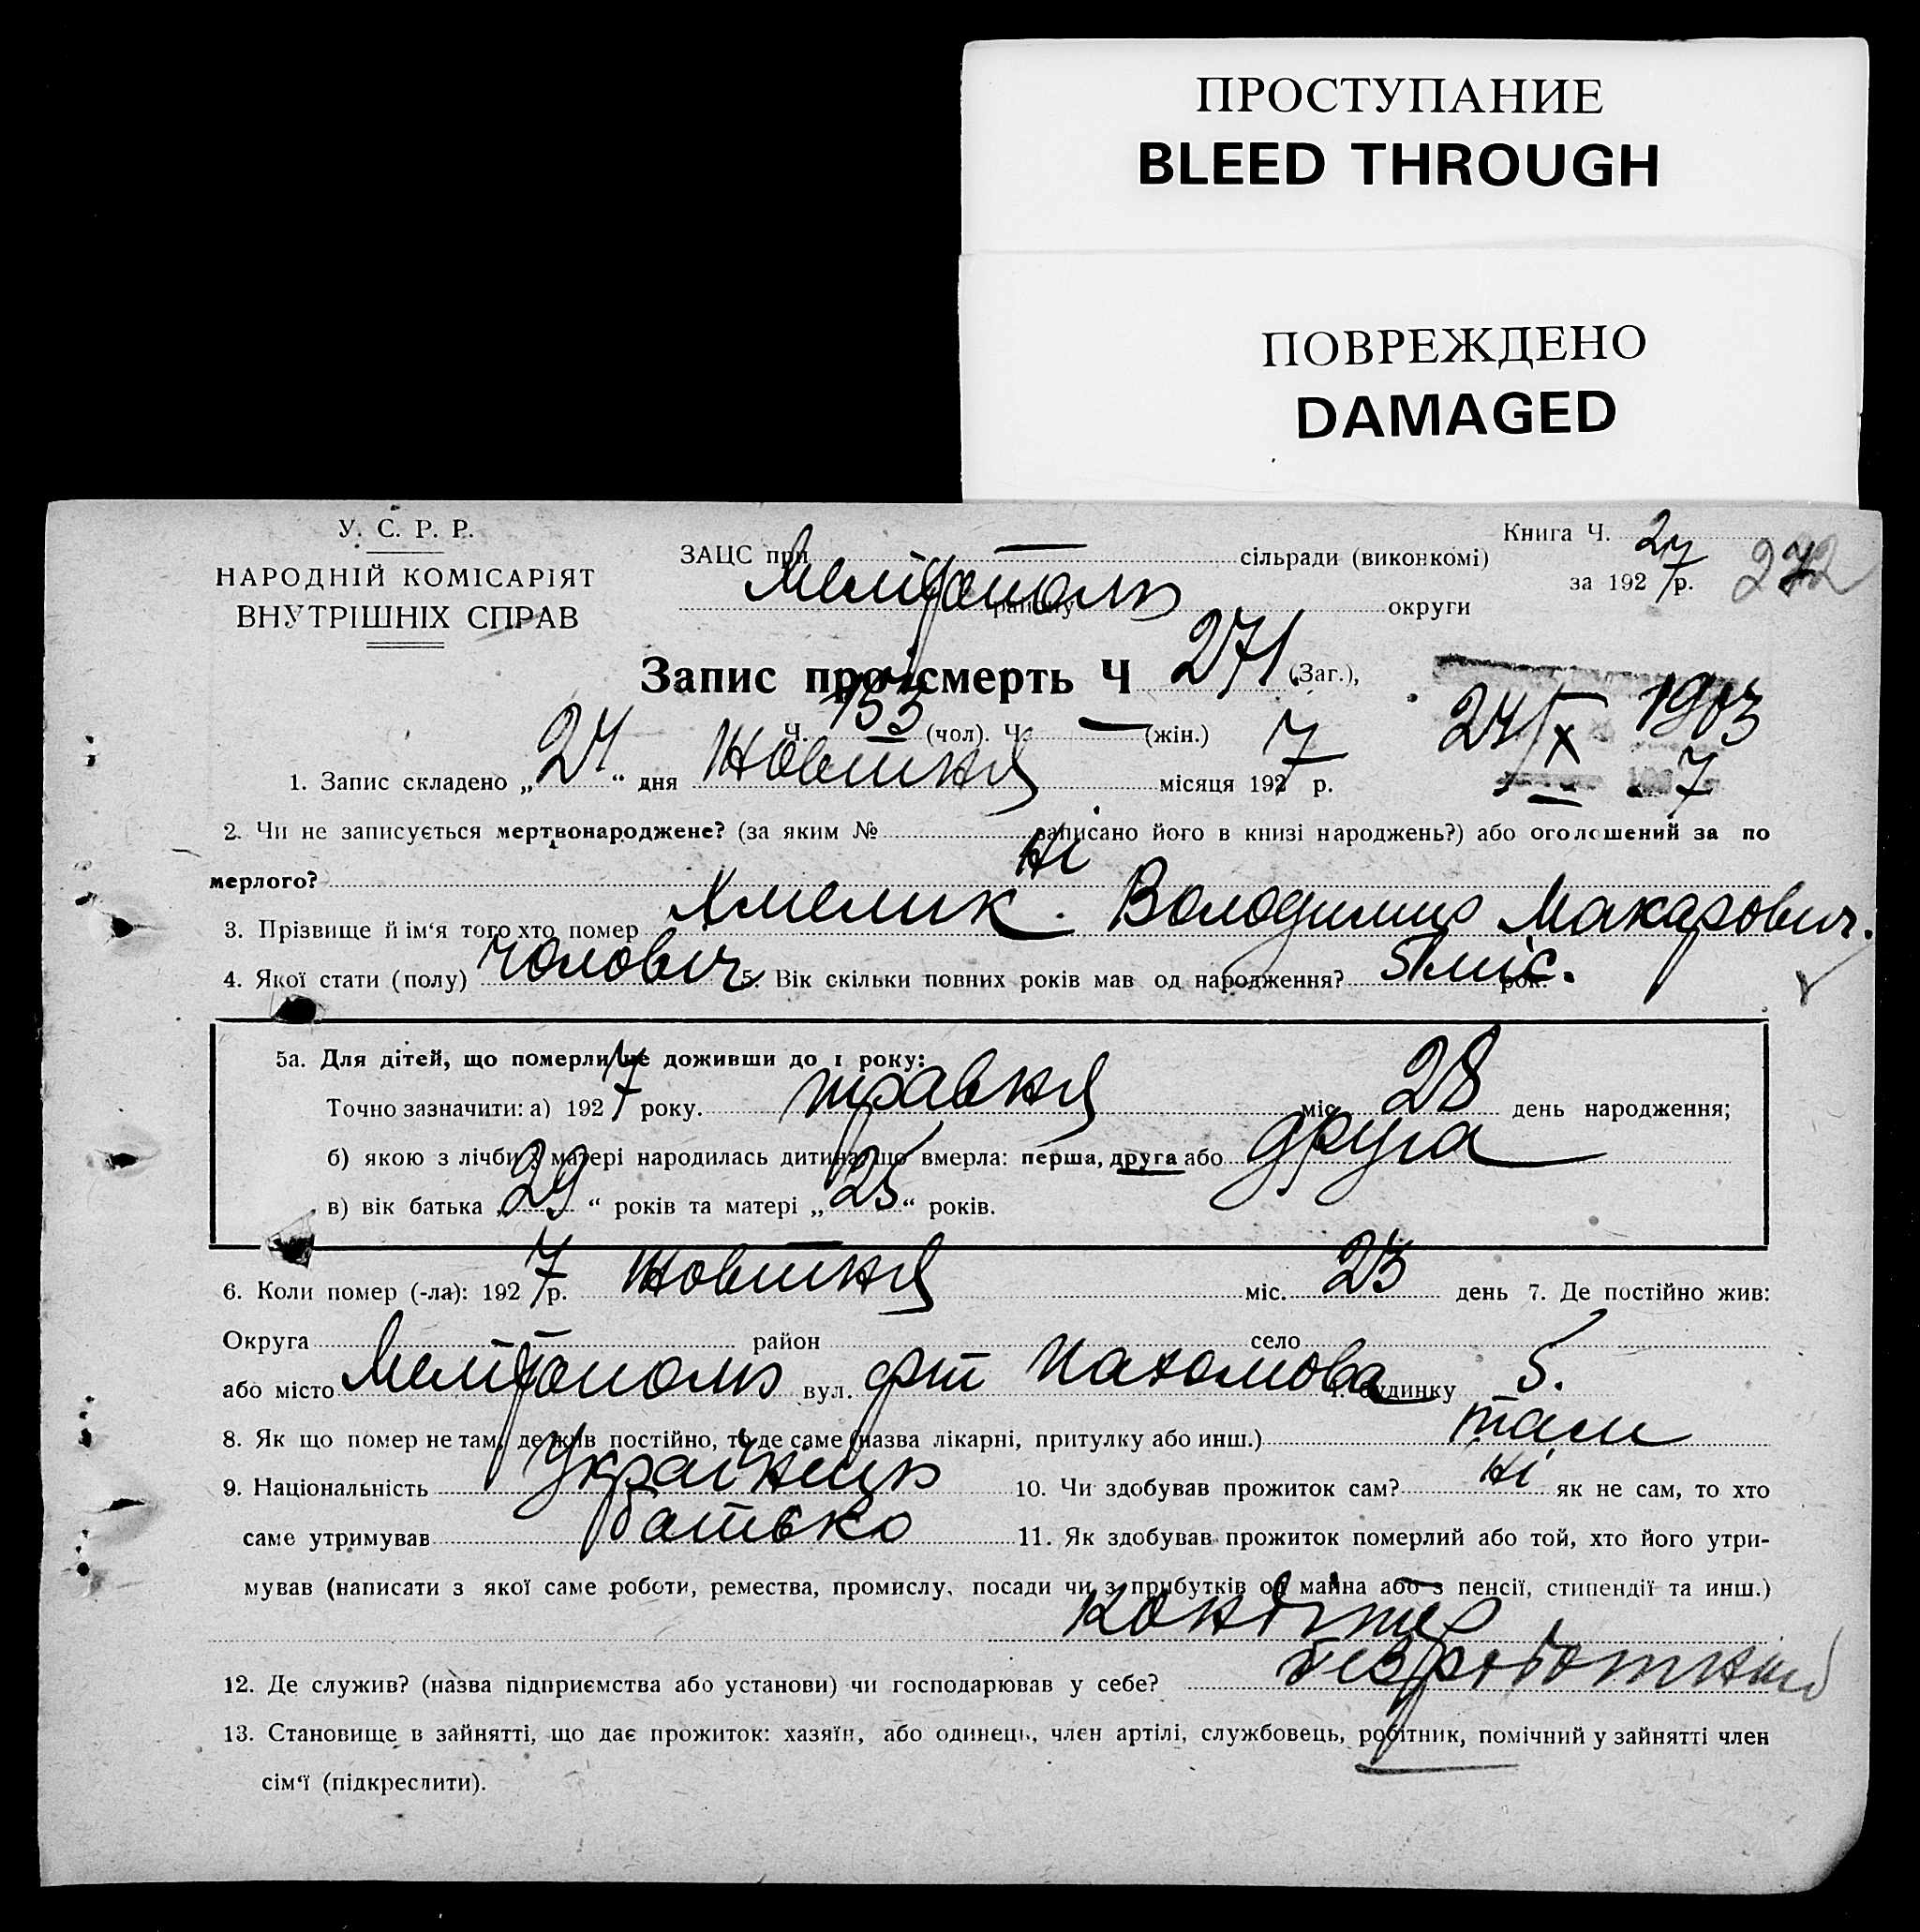 ПРОСТУПАНИЕ
BLEED THROUGH
ПОВРЕЖДЕНО
DAMAGED
У. С. Р. Р.
НАРОДНІЙ КОМІСАРІЯТ
ВНУТРІШНІХ СПРАВ
ЗАЦС при — сільради (виконкомі)
Мелітополь району округи
Книга Ч. 27
за 1927 р. 272
Запис про смерть Ч 271 (Заг.),
Ч. 153 (чол). Ч. — (жін.)
24/X 1903
7
1. Запис складено „24“ дня Жовтня місяця 1927 р.
2. Чи не записується мертвонароджене? (за яким № записано його в книзі народжень?) або оголошений за по
мерлого? Ні
3. Прізвище й ім‘я того хто помер Хмелик Володимир Макарович.
4. Якої стати (полу) чолович 5. Вік скільки повних років мав од народження? 5 міс. рок.
5а. Для дітей, що померли не доживши до 1 року:
Точно зазначити: а) 1927 року. травня міс. 28 день народження;
б) якою з лічби у матері народилась дитина, що вмерла: перша, друга або друга
в) вік батька „29“ років та матері „25“ років.
6. Коли помер (-ла): 1927 р. Жовтня міс. 23 день 7. Де постійно жив:
Округа район село
або місто Мелітополь вул. Пахомова ч. будинку 5.
8. Як що помер не там, де жив постійно, то де саме (назва лікарні, притулку або инш.) там
9. Національність Українець 10. Чи здобував прожиток сам? ні як не сам, то хто
саме утримував батько 11. Як здобував прожиток померлий або той, хто його утри-
мував (написати з якої саме роботи, ремества, промислу, посади чи з прибутків од майна або з пенсії, стипендії та инш.)
12. Де служив? (назва підприємства або установи) чи господарював у себе? безроботний
13. Становище в зайнятті, що дає прожиток: хазяїн, або одинець, член артілі, службовець, робітник, помічний у зайнятті член
сім‘ї (підкреслити).